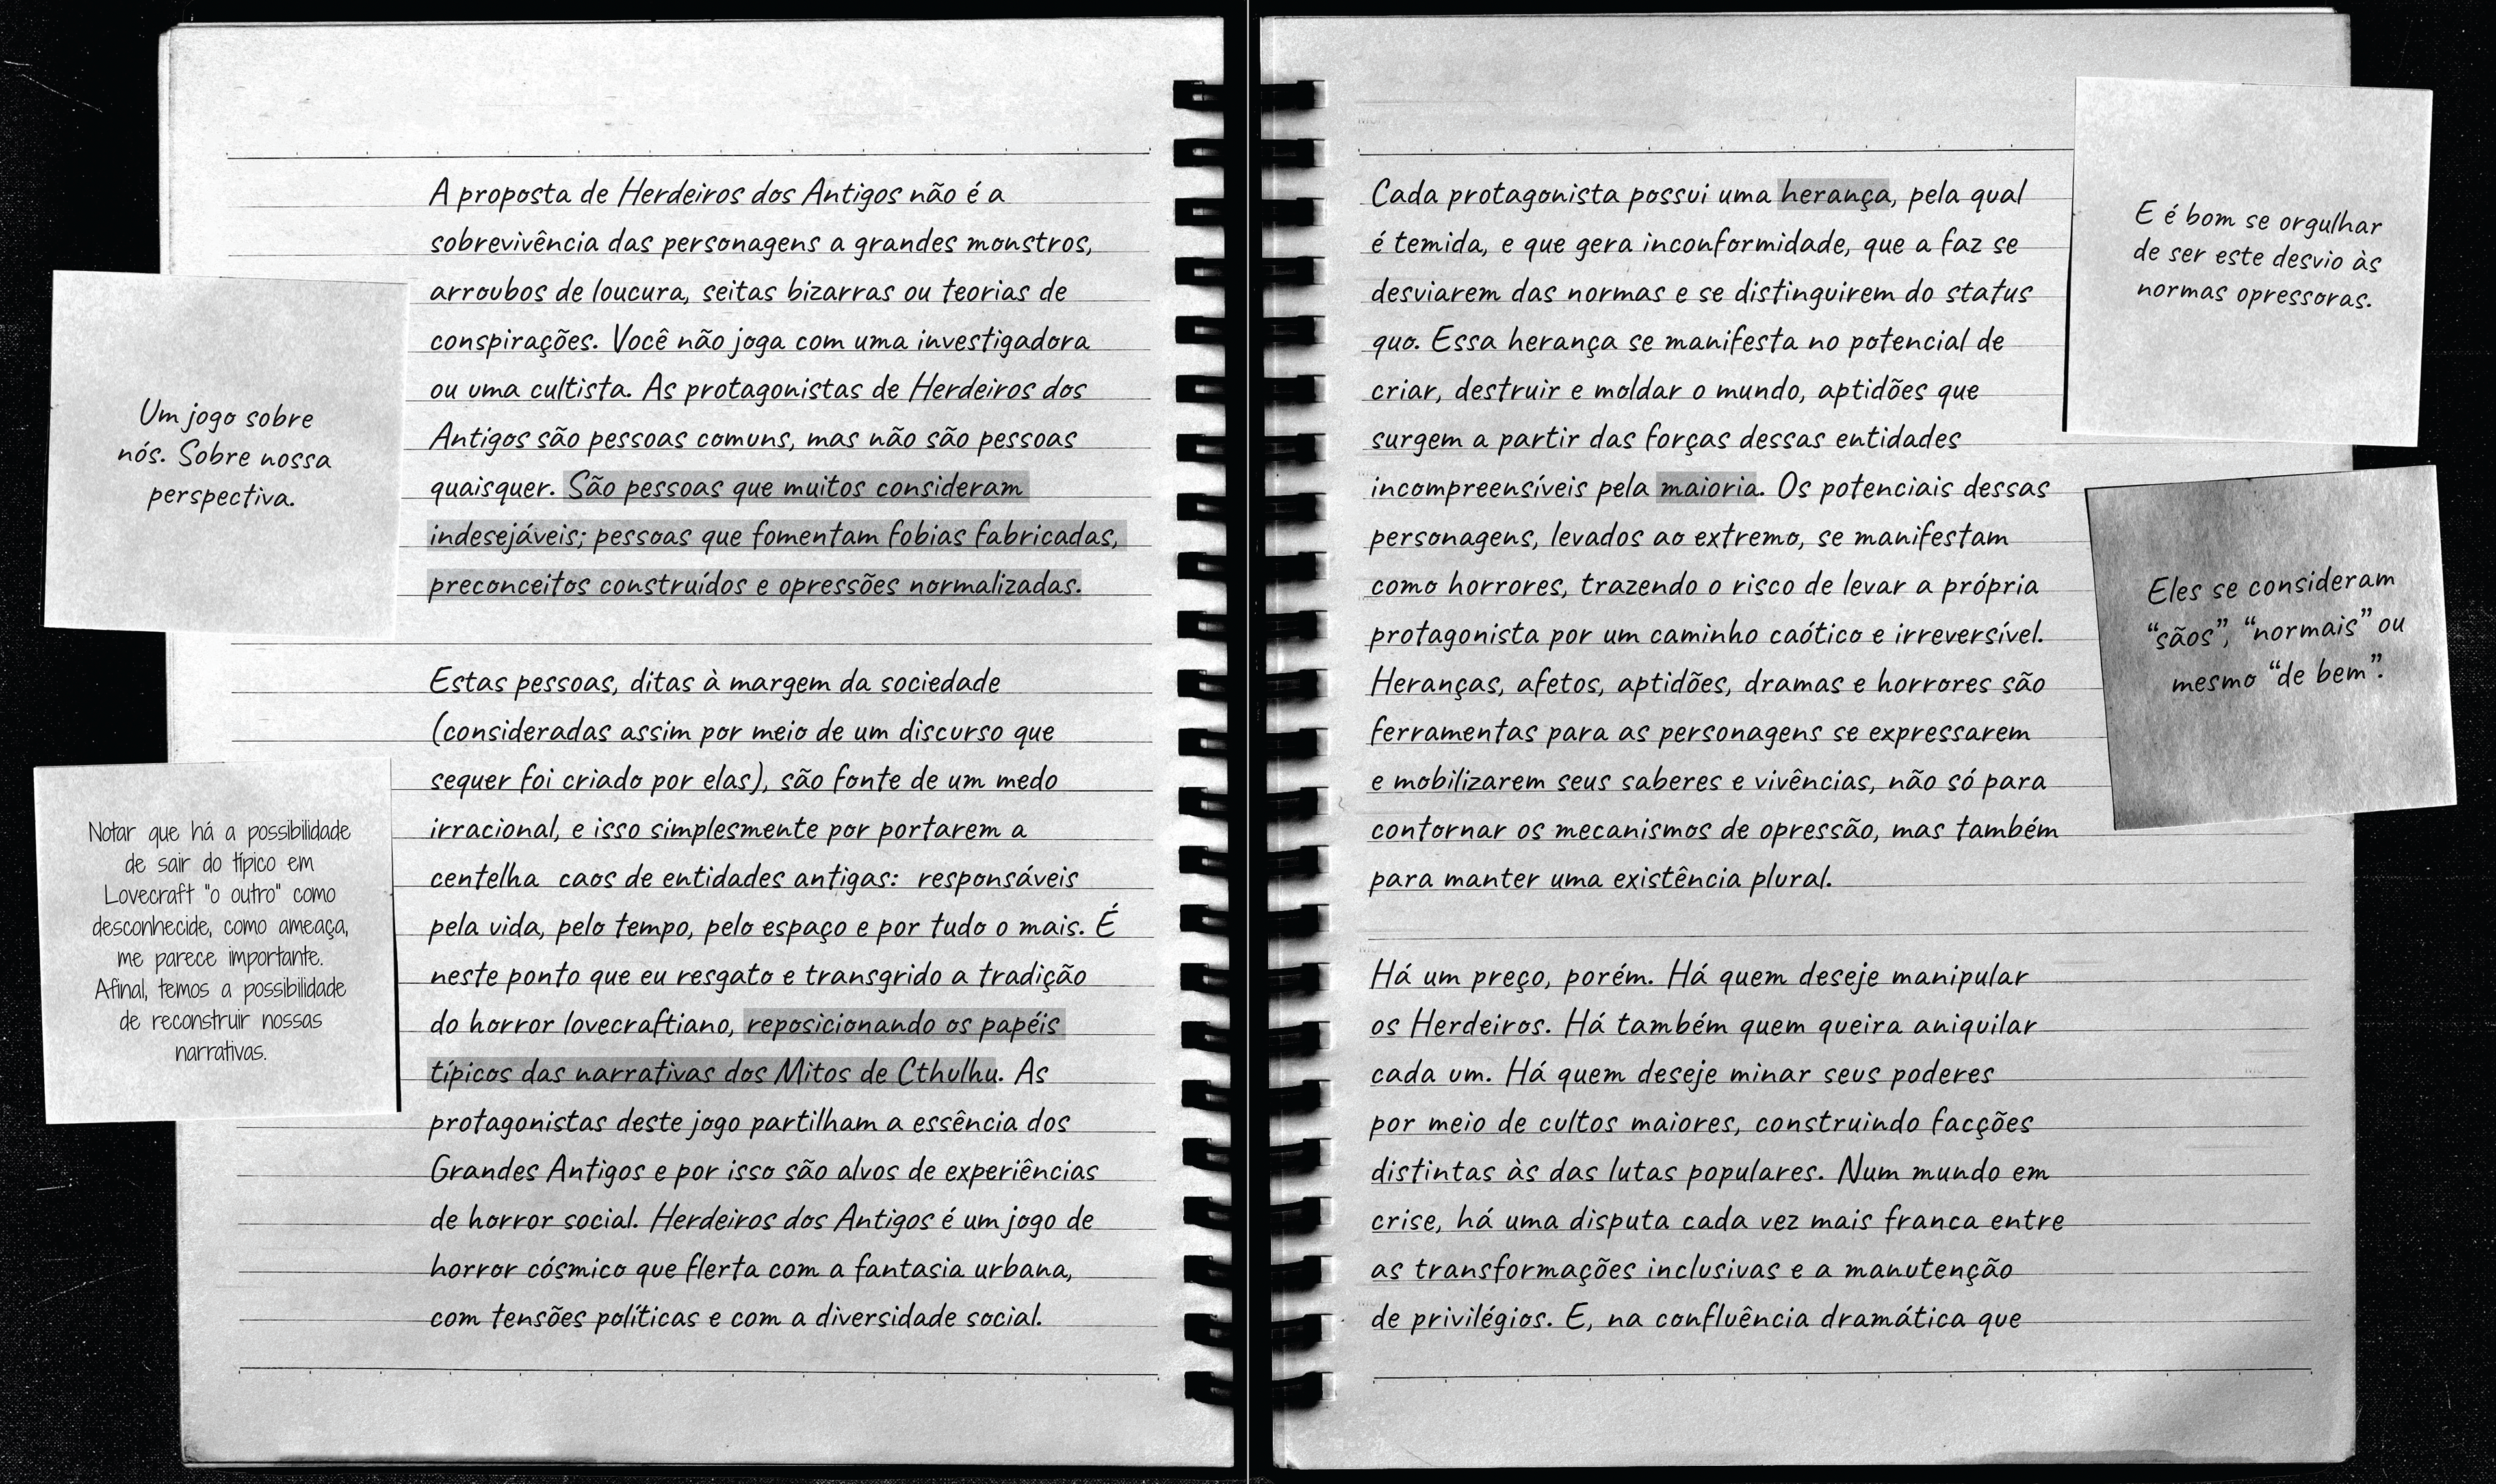 A proposta de Herdeiros dos Antigos não é a
sobrevivência das personagens a grandes monstros,
arroubos de loucura, seitas bizarras ou teorias de
conspirações. Você não joga com uma investigadora
ou uma cultista. As protagonistas de Herdeiros dos
Antigos são pessoas comuns, mas não são pessoas
quaisquer. São pessoas que muitos consideram
indesejáveis; pessoas que fomentam fobias fabricadas,
preconceitos construídos e opressões normalizadas.
Um jogo sobre
nós. Sobre nossa
perspectiva.
Estas pessoas, ditas à margem da sociedade
(consideradas assim por meio de um discurso que
sequer foi criado por elas), são fonte de um medo
irracional, e isso simplesmente por portarem a
centelha caos de entidades antigas: responsáveis
pela vida, pelo tempo, pelo espaço e por tudo o mais. É
neste ponto que eu resgato e transgrido a tradição
do horror lovecraftiano, reposicionando os papéis
típicos das narrativas dos Mitos de Cthulhu. As
protagonistas deste jogo partilham a essência dos
Grandes Antigos e por isso são alvos de experiências
de horror social. Herdeiros dos Antigos é um jogo de
horror cósmico que flerta com a fantasia urbana,
com tensões políticas e com a diversidade social.
Notar que há a possibilidade
de sair do típico em
Lovecraft "o outro" como
desconhecide, como ameaça,
me parece importante.
Afinal, temos a possibilidade
de reconstruir nossas
narrativas.
Cada protagonista possui uma herança, pela qual
é temida, e que gera inconformidade, que a faz se
desviarem das normas e se distinguirem do status
quo. Essa herança se manifesta no potencial de
criar, destruir e moldar o mundo, aptidões que
surgem a partir das forças dessas entidades
incompreensíveis pela maioria. Os potenciais dessas
personagens, levados ao extremo, se manifestam
como horrores, trazendo o risco de levar a própria
protagonista por um caminho caótico e irreversível.
Heranças, afetos, aptidões, dramas e horrores são
ferramentas para as personagens se expressarem
e mobilizarem seus saberes e vivências, não só para
contornar os mecanismos de opressão, mas também
para manter uma existência plural.
E é bom se orgulhar
de ser este desvio às
normas opressoras.
Eles se consideram
“sãos”, “normais” ou
mesmo “de bem”.
Há um preço, porém. Há quem deseje manipular
os Herdeiros. Há também quem queira aniquilar
cada um. Há quem deseje minar seus poderes
por meio de cultos maiores, construindo facções
distintas às das lutas populares. Num mundo em
crise, há uma disputa cada vez mais franca entre
as transformações inclusivas e a manutenção
de privilégios. E, na confluência dramática que